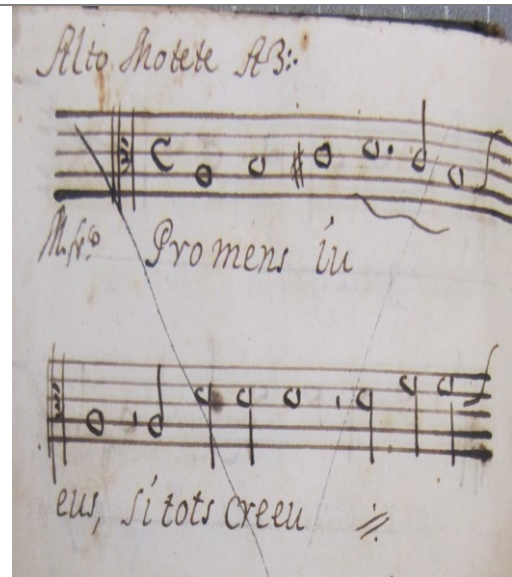 Alto Motete A3:
Pro mens iu
eus, si tots creeu